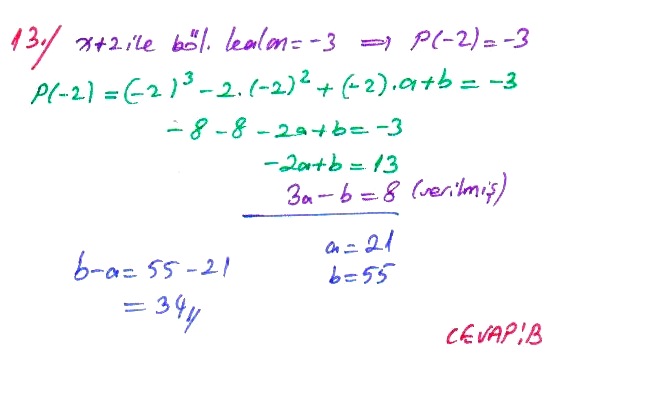 13.) x+2 ile böl. kalan = -3 ⇒ P(-2) = -3
P(-2) = (-2)³ - 2.(-2)² + (-2).a+b = -3
-8-8-2a+b = -3
-2a+b = 13
3a-b = 8 (verilmiş)
a = 21
b = 55
b-a = 55-21
= 34//
CEVAP: B